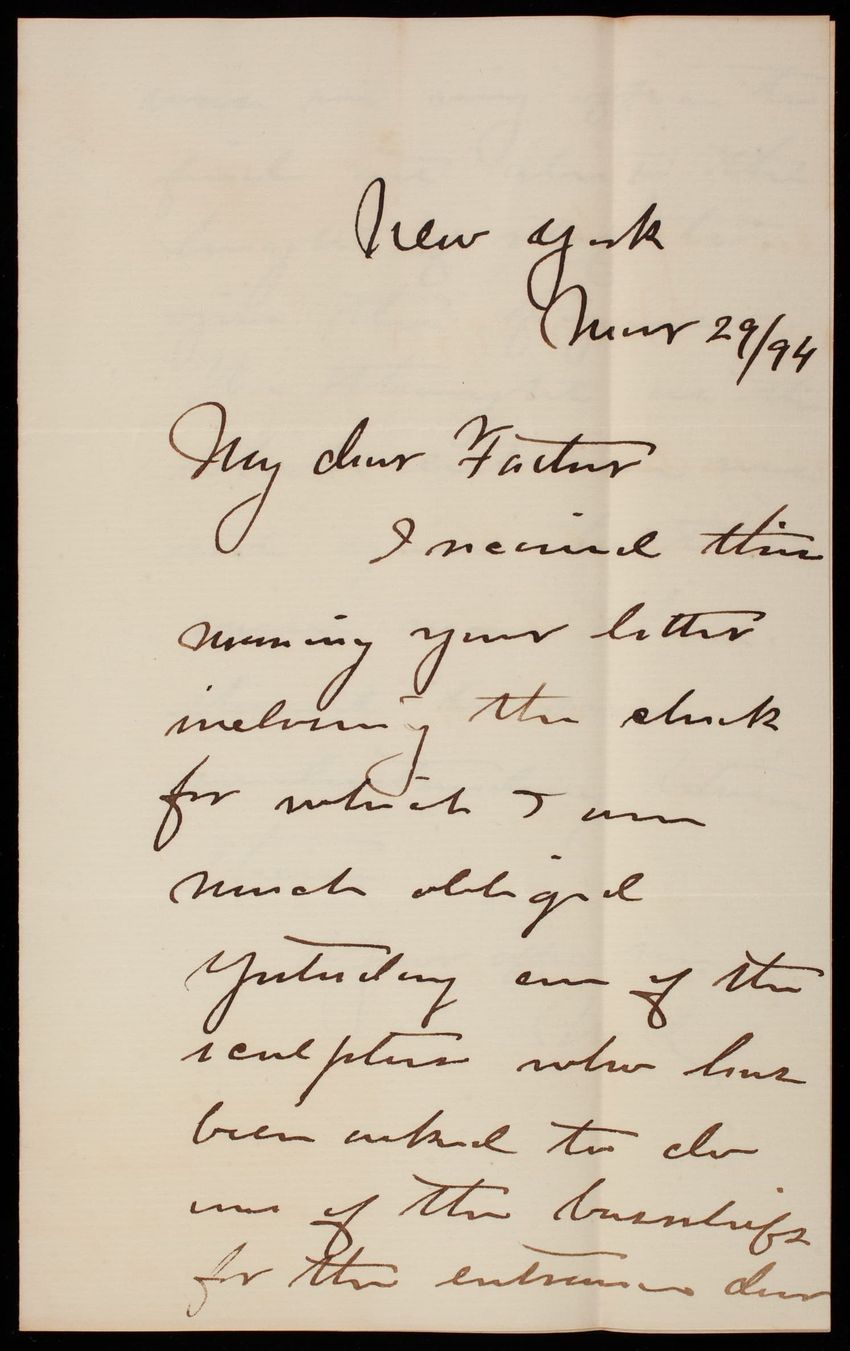 New York
Mar 29/94
My dear Father
I received this
morning your letter
inclosing the check
for which I am
much obliged
Yesterday one of the
sculptors who has
been asked to do
one of the bas reliefs
for the entrance door